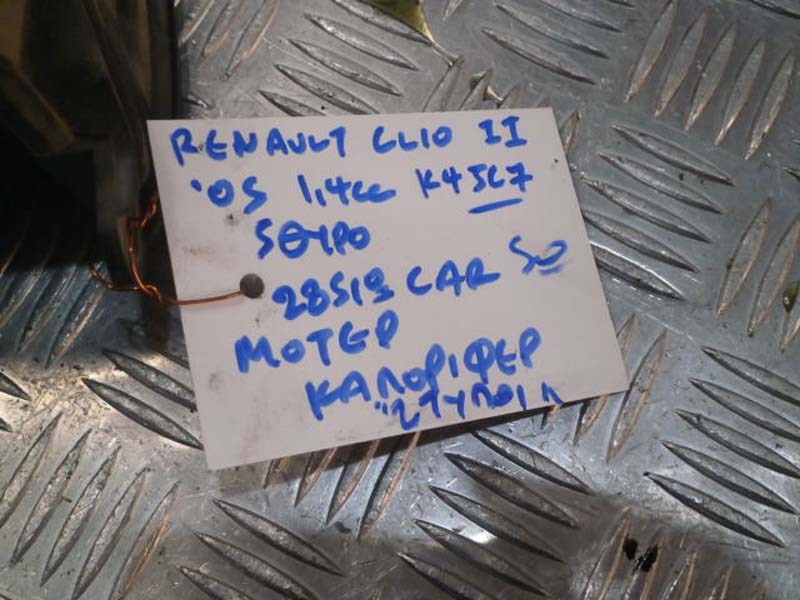 RENAULT CLIO II
'05 1,4cc K4JC7
5ΘΥΡΟ
28518 CAR 50
ΜΟΤΕΡ
ΚΑΛΟΡΙΦΕΡ
"2ΤΥΠΟΙ"